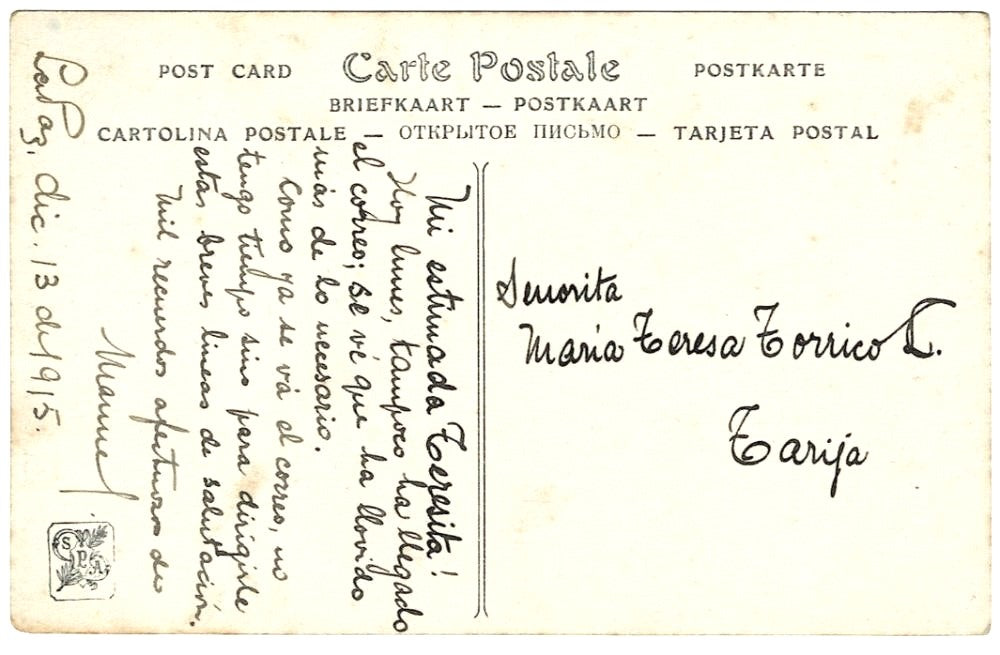 POST CARD Carte Postale POSTKARTE
BRIEFKAART — POSTKAART
CARTOLINA POSTALE — ОТКРЫТОЕ ПИСЬМО — TARJETA POSTAL
LaPaz, dic. 13 de 1915.
Mi estimada Teresita!
Hoy lunes, tampoco ha llegado
el correo; se vé que ha llovido
más de lo necesario.
Como ya se vá el correo, no
tengo tiempo sino para dirigirte
estas breves lineas de salutación.
Mil recuerdos afectuosos de
Manuel
Senorita
María Teresa Torrico L.
Tarija
SPA